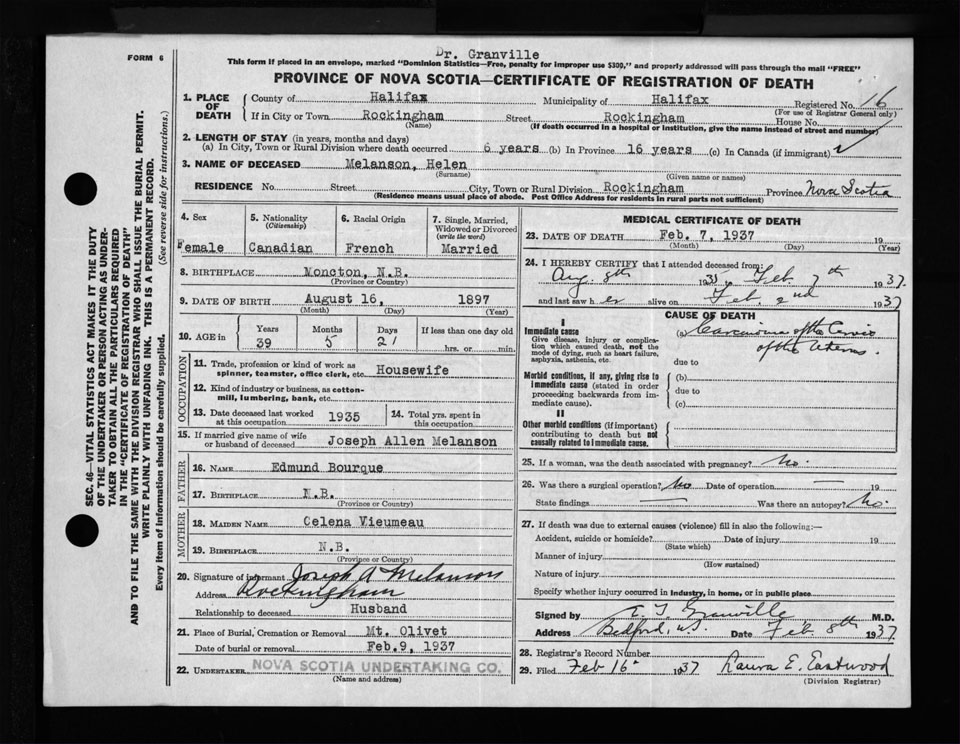 Dr. Granville
FORM 6
This form if placed in an envelope, marked "Dominion Statistics—Free, penalty for improper use $300," and properly addressed will pass through the mail "FREE"
PROVINCE OF NOVA SCOTIA—CERTIFICATE OF REGISTRATION OF DEATH
1. PLACE OF DEATH
County of Halifax Municipality of Halifax Registered No. 16
(For use of Registrar General only)
If in City or Town Rockingham Street Rockingham House No.
(Name) (If death occurred in a hospital or institution, give the name instead of street and number)
2. LENGTH OF STAY (in years, months and days)
(a) In City, Town or Rural Division where death occurred 6 years (b) In Province 16 years (c) In Canada (if immigrant)
3. NAME OF DECEASED Melanson, Helen
(Surname) (Given name or names)
RESIDENCE No. Street City, Town or Rural Division Rockingham Province Nova Scotia
(Residence means usual place of abode. Post Office Address for residents in rural parts not sufficient)
4. Sex
Female
5. Nationality
(Citizenship)
Canadian
6. Racial Origin
French
7. Single, Married, Widowed or Divorced
(write the word)
Married
8. BIRTHPLACE Moncton, N.B.
(Province or Country)
9. DATE OF BIRTH August 16, 1897
(Month) (Day) (Year)
10. AGE in
Years Months Days If less than one day old
39 5 21 hrs. or min.
OCCUPATION
11. Trade, profession or kind of work as
spinner, teamster, office clerk, etc. Housewife
12. Kind of industry or business, as cotton-
mill, lumbering, bank, etc.
13. Date deceased last worked
at this occupation 1935
14. Total yrs. spent in
this occupation
15. If married give name of wife
or husband of deceased Joseph Allen Melanson
FATHER
16. NAME Edmund Bourque
17. BIRTHPLACE N.B.
(Province or Country)
MOTHER
18. MAIDEN NAME Celena Vieumeau
19. BIRTHPLACE N.B.
(Province or Country)
20. Signature of informant Joseph A Melanson
Address Rockingham
Relationship to deceased Husband
21. Place of Burial, Cremation or Removal Mt. Olivet
Date of burial or removal Feb.9, 1937
22. UNDERTAKER NOVA SCOTIA UNDERTAKING CO.
(Name and address)
MEDICAL CERTIFICATE OF DEATH
23. DATE OF DEATH Feb. 7, 1937 19
(Month) (Day) (Year)
24. I HEREBY CERTIFY that I attended deceased from:
Aug. 8th Feb. 7th 1937
and last saw her alive on Feb. 2nd 1937
CAUSE OF DEATH
I
Immediate cause
Give disease, injury or complica-
tion which caused death, not the
mode of dying, such as heart failure,
asphyxia, asthenia, etc.
(a) Carcinoma of the Cervix
of the Uterus.
due to
Morbid conditions, if any, giving rise to
immediate cause (stated in order
proceeding backwards from im-
mediate cause).
(b)
due to
(c)
II
Other morbid conditions (if important)
contributing to death but not
causally related to immediate cause.
25. If a woman, was the death associated with pregnancy? No.
26. Was there a surgical operation? No Date of operation — 19
State findings — Was there an autopsy? No.
27. If death was due to external causes (violence) fill in also the following:—
Accident, suicide or homicide? Date of injury 19
(State which)
Manner of injury
(How sustained)
Nature of injury
Specify whether injury occurred in industry, in home, or in public place
Signed by Granville M.D.
Address Bedford, N.S. Date Feb 8th 1937
28. Registrar's Record Number
29. Filed Feb 16 1937 Laura E. Eastwood
(Division Registrar)
SEC. 46—VITAL STATISTICS ACT MAKES IT THE DUTY
OF THE UNDERTAKER OR PERSON ACTING AS UNDER-
TAKER TO OBTAIN ALL THE PARTICULARS REQUIRED
IN THE "CERTIFICATE OF REGISTRATION OF DEATH"
AND TO FILE THE SAME WITH THE DIVISION REGISTRAR WHO SHALL ISSUE THE BURIAL PERMIT.
WRITE PLAINLY WITH UNFADING INK. THIS IS A PERMANENT RECORD.
Every item of information should be carefully supplied. (See reverse side for instructions.)